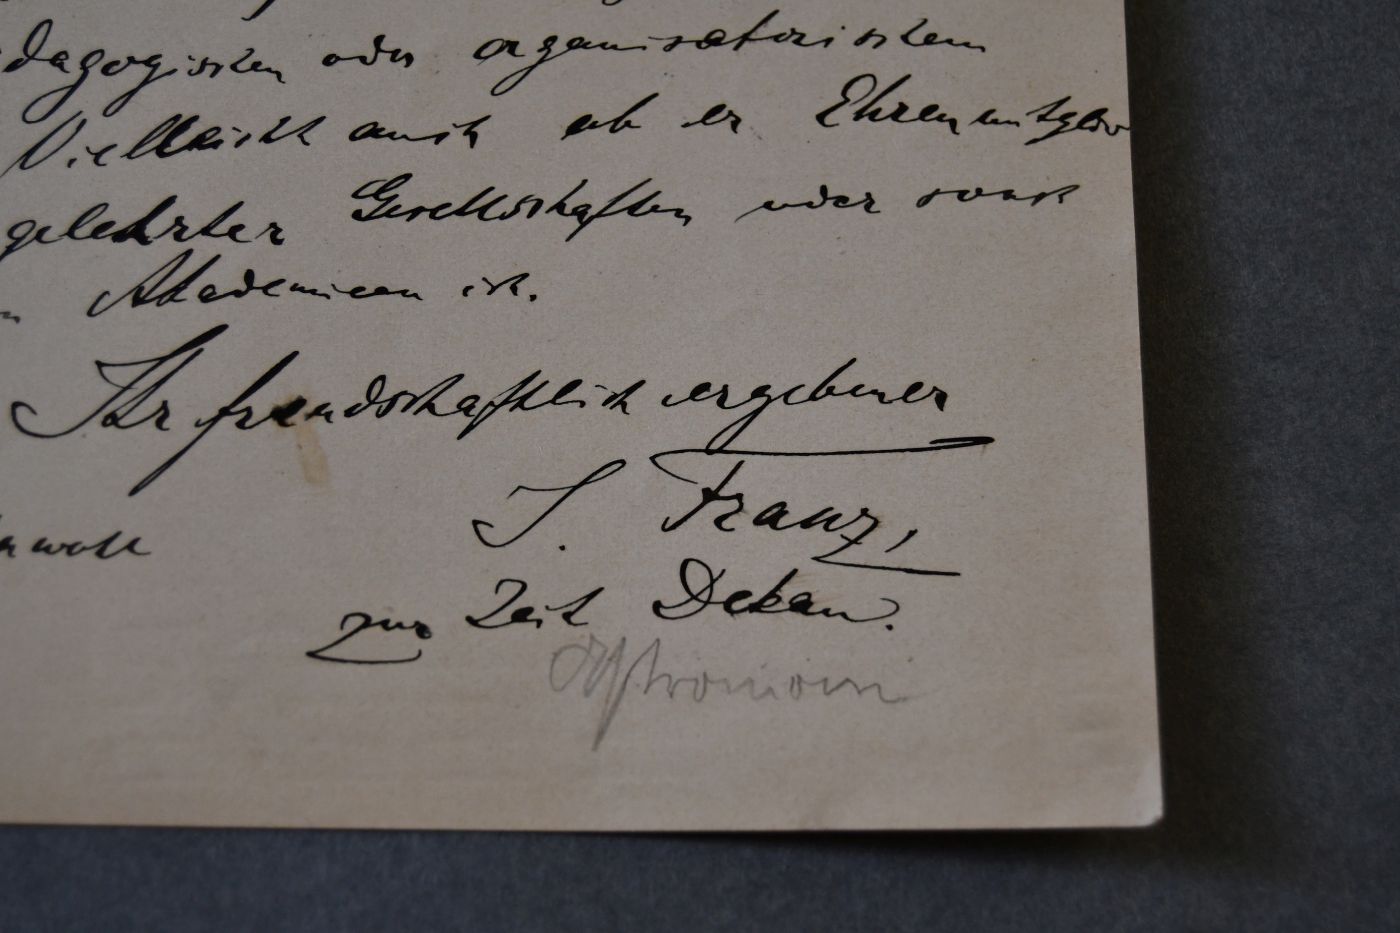 dagogischen oder organisatorischem
Vielleicht auch ob er Ehrenmitglied
gelehrter Gesellschaften oder sonst
n Akademieen ist.
Ihr freundschaftlich ergebener
J. Franz,
zur Zeit Dekan.
Astronom